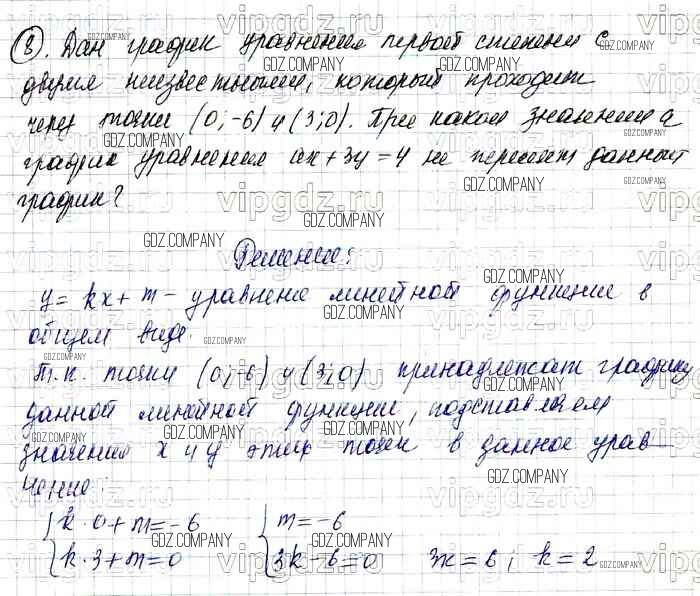 8. Дан график уравнения первой степени с
двумя неизвестными, который проходит
через точки (0;-6) и (3;0). При каком значении а
график уравнения ax+3y=4 не пересечет данный
график?
Решение:
y = kx + m - уравнение линейной функции в
общем виде.
Т.к. точки (0;-6) и (3;0) принадлежат графику
данной линейной функции, подставляем
значения x и y этих точек в данное урав-
нение:
{k·0+m=-6 {m=-6
{k·3+m=0 {3k-6=0 3k=6; k=2
vipgdz.ru
GDZ.COMPANY